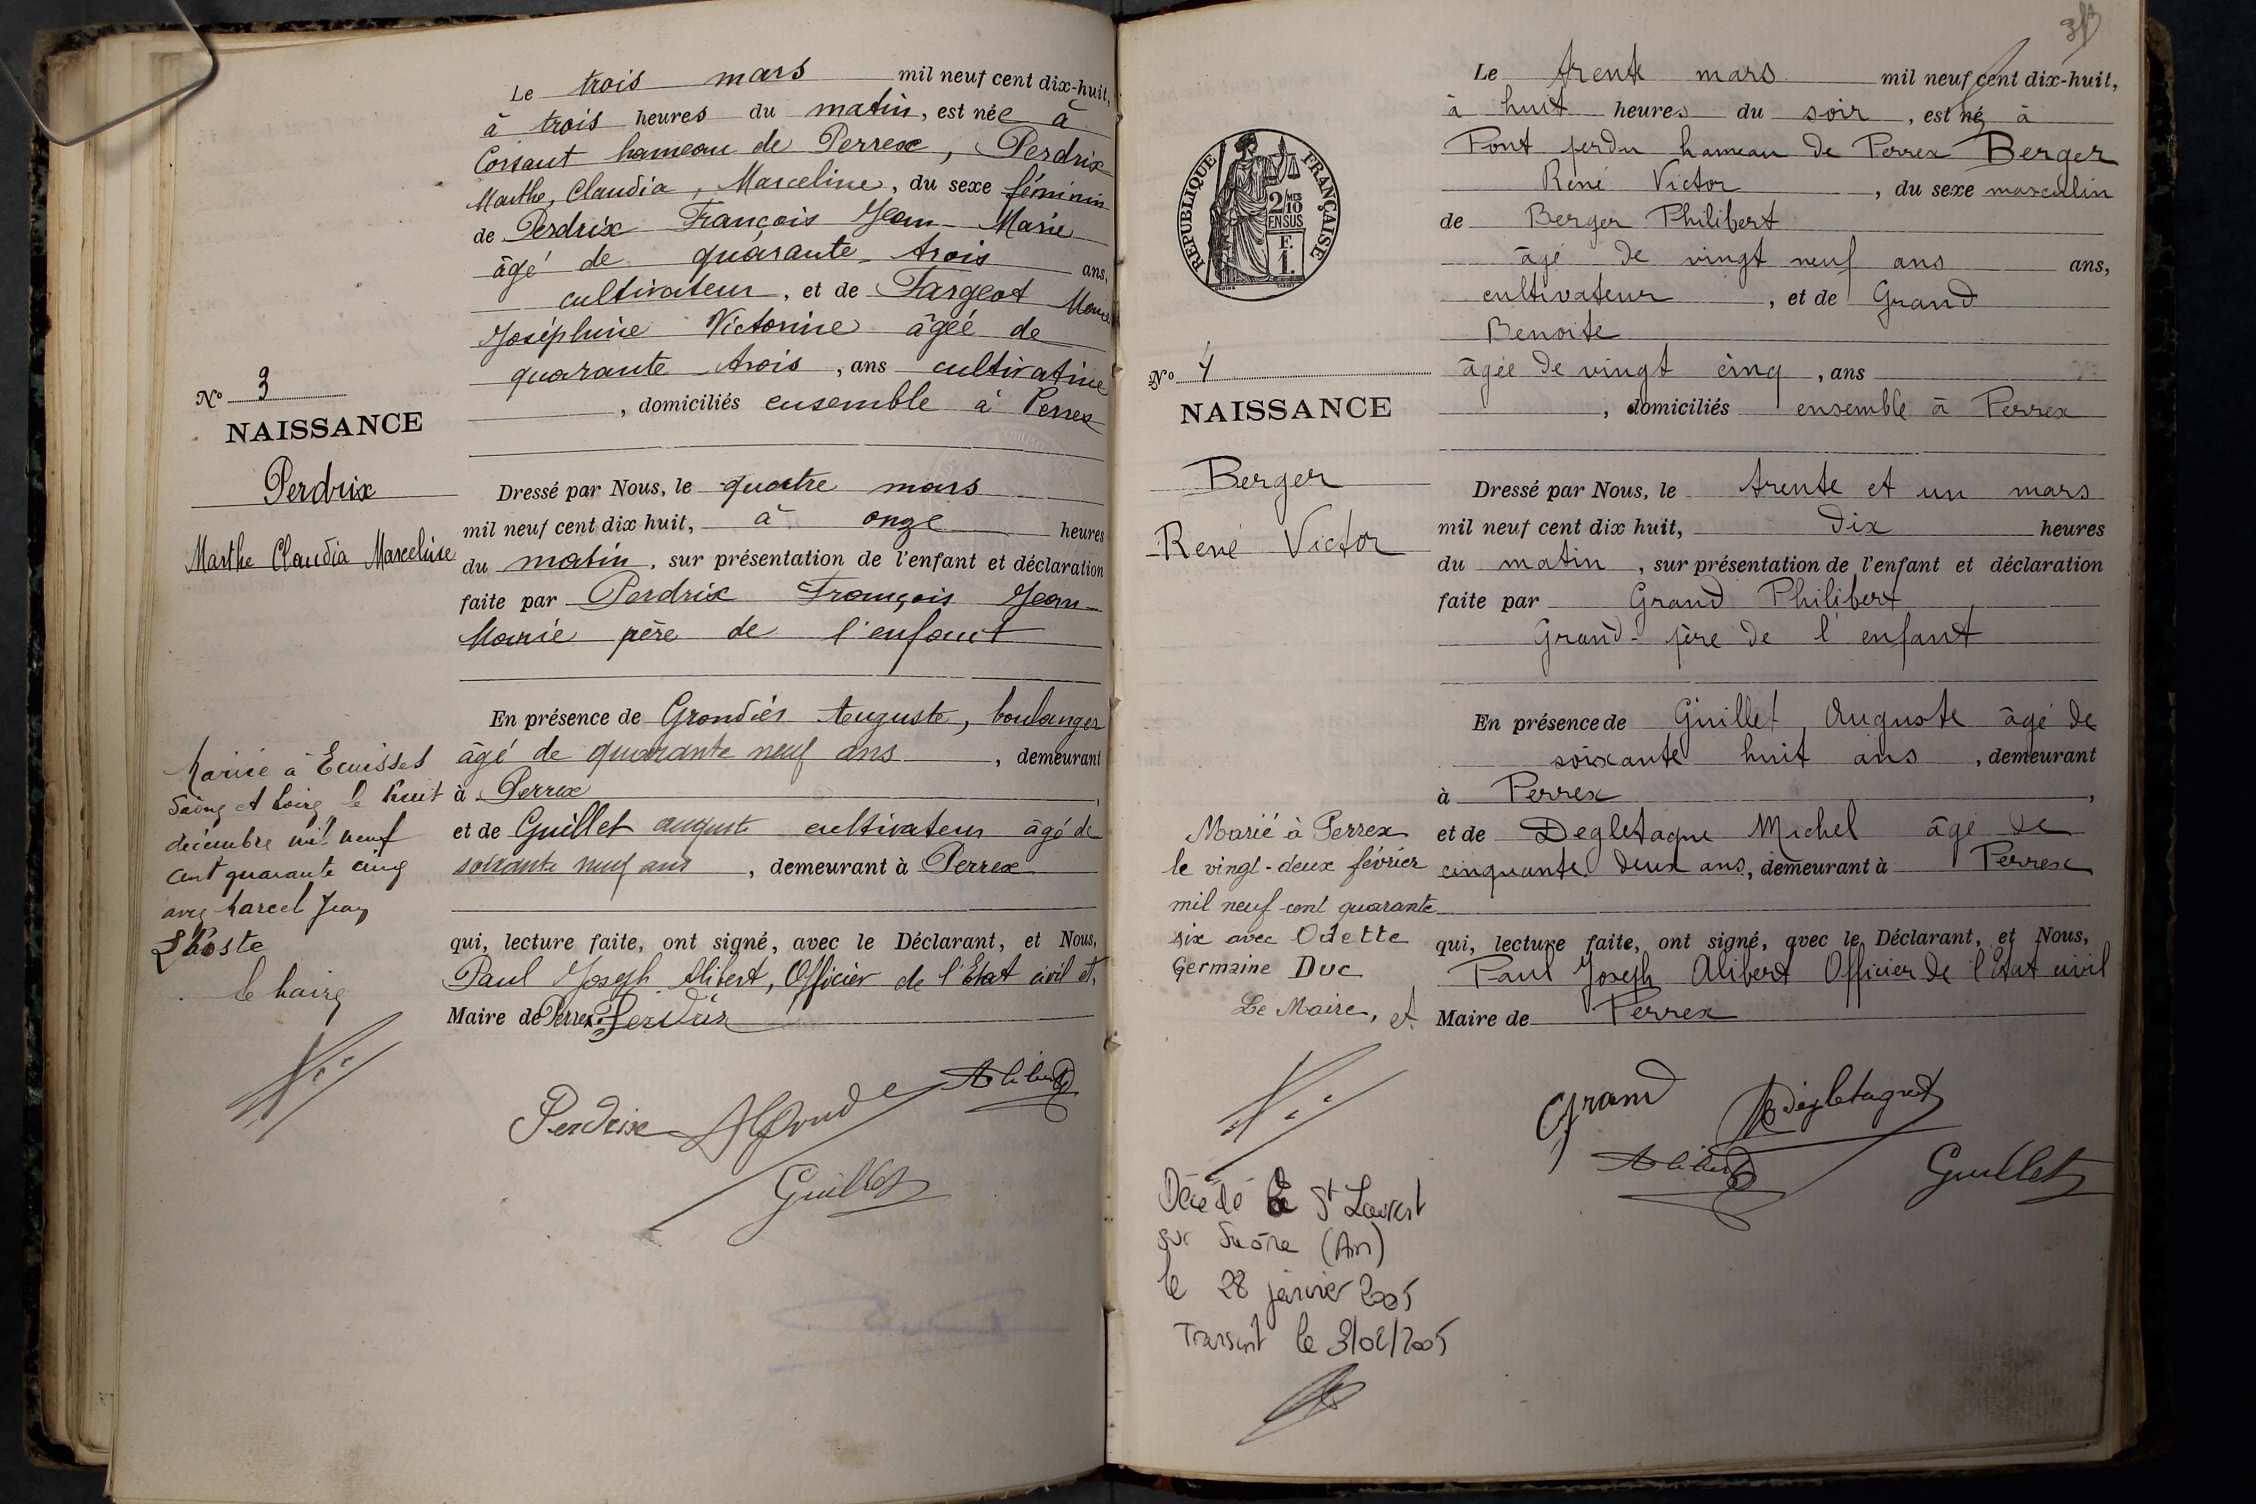 Le trois mars mil neuf cent dix-huit,
à trois heures du matin, est née à
Corsant hameau de Perrex, Perdrix
Marthe, Claudia, Marceline, du sexe féminin
de Perdrix François Jean-Marie
âgé de quarante-trois ans,
cultivateur, et de Fargeot Marie
Joséphine Victorine âgée de
quarante trois, ans cultivatrice
, domiciliés ensemble à Perrex
No 3
NAISSANCE
Perdrix
Marthe Claudia Marceline
Dressé par Nous, le quatre mars
mil neuf cent dix huit, à onze heures
du matin, sur présentation de l'enfant et déclaration
faite par Perdrix François Jean-
Marie père de l'enfant
En présence de Grondier Auguste, boulanger
âgé de quarante neuf ans, demeurant
à Perrex,
et de Guillet auguste cultivateur âgé de
soixante neuf ans, demeurant à Perrex
qui, lecture faite, ont signé, avec le Déclarant, et Nous,
Paul Joseph Alibert, Officier de l'Etat civil et,
Maire de Perrex. Perdrix
Mariée à Ecuisses
Saône et Loire, le huit
décembre mil neuf
cent quarante cinq
avec Marcel Jean
Lhoste
Le Maire
Perdrix Alibert
Guillet
Le trente mars mil neuf cent dix-huit,
à huit heures du soir, est né à
Pont perdu hameau de Perrex Berger
René Victor, du sexe masculin
de Berger Philibert
âgé de vingt neuf ans ans,
cultivateur, et de Grand
Benoite
âgée de vingt cinq, ans
, domiciliés ensemble à Perrex
RÉPUBLIQUE FRANÇAISE
2 MES
10
EN SUS
F.
1.
No 4
NAISSANCE
Berger
René Victor
Dressé par Nous, le trente et un mars
mil neuf cent dix huit, dix heures
du matin, sur présentation de l'enfant et déclaration
faite par Grand Philibert
Grand-père de l'enfant
En présence de Guillet Auguste âgé de
soixante huit ans, demeurant
à Perrex,
et de Degletagne Michel âgé de
cinquante deux ans, demeurant à Perrex
qui, lecture faite, ont signé, avec le Déclarant, et Nous,
Paul Joseph Alibert Officier de l'Etat civil
et Maire de Perrex
Marié à Perrex
le vingt-deux février
mil neuf cent quarante
six avec Odette
Germaine Duc
Le Maire,
Grand Degletagne
Alibert Guillet
Décédé à St Laurent
sur Saône (Ain)
le 28 janvier 2005
Transcrit le 3/02/2005